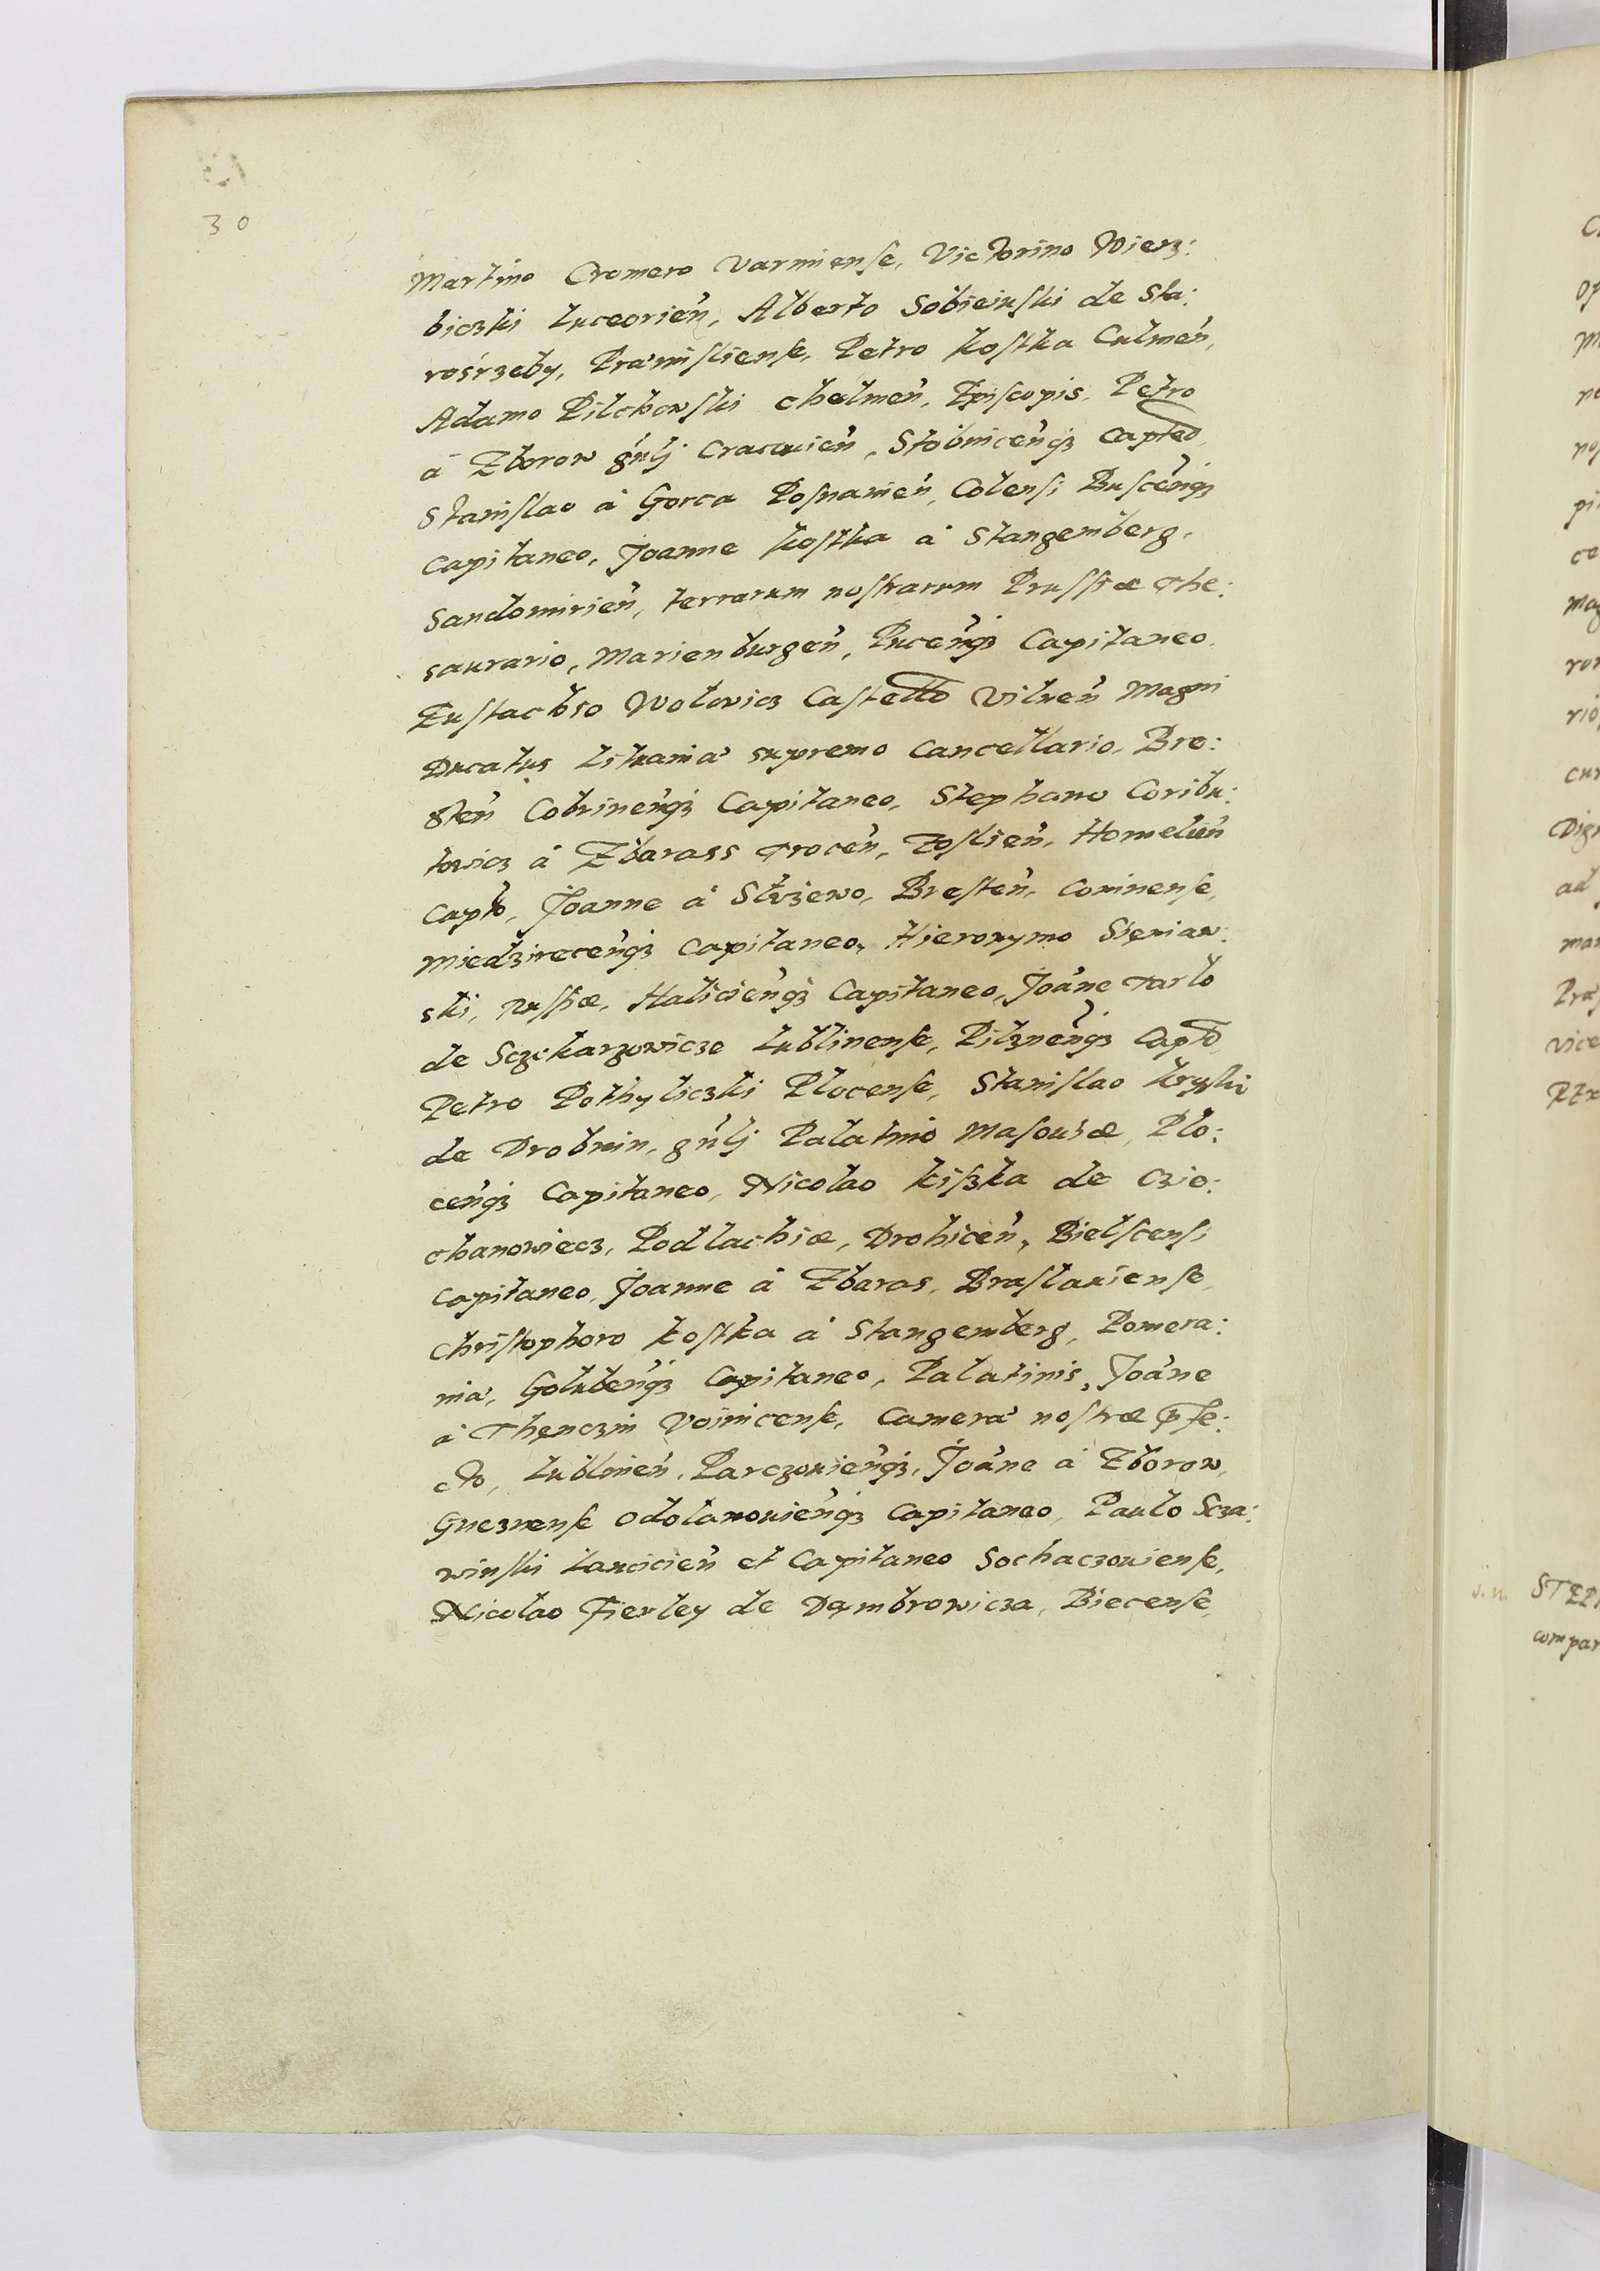 30
Martino Cromero Varmiense, Victorino Wierz:
biczki Luceorien̄, Alberto Sobieiuski de Sta:
rosrzeby, Præmisliense, Petro Kostka Culmen̄,
Adamo Pilchowski Chelmen̄, Episcopis, Petro
à Zborow gn̄lj Cracouien̄, Stobnicen̄q₃ Capteo,
Stanislao à Gorca Posnanien̄, Colensi Buscen̄q₃
Capitaneo, Joanne Kostka à Stangemberg,
Sandomirien̄, terrarum nostrarum Prussiæ The:
saurario, Marienburgen̄, Pucen̄q₃ Capitaneo,
Eustachio Wolowicz Castello Vilnen̄ Magni
Ducatus Lituaniæ supremo Cancellario, Bre:
sten̄ Cobrinen̄q₃ Capitaneo, Stephano Coribu:
towicz à Zbarass Trocen̄, Zoslien̄, Homelien̄
Capto, Joanne à Sluzewo, Bresten̄, Coninense,
Miedzirecen̄q₃ Capitaneo, Hieronymo Sieniaw:
ski, Russiæ, Halicien̄q₃ Capitaneo, Joāne Tarlo
de Sczekarzowicze Lublinense, Pilznen̄q₃ Capto,
Petro Pothyliczki Plocense, Stanislao Kryski
de Drobnin, gn̄lj Palatino Masouiæ, Plo:
cen̄q₃ Capitaneo, Nicolao Kiszka de Czie:
chanowiecz, Podlachiæ, Drohicen̄, Bielscensi
Capitaneo, Joanne à Zbaras, Braslauiense,
Christophoro Kostka à Stangemberg, Pomera:
niæ, Goluben̄q₃ Capitaneo, Palatinis, Joāne
à Thenczin Voinicense, Cameræ nostræ p̄fe:
cto, Lublinen̄, Parczouien̄q₃, Joāne à Zborow,
Gneznense Odolanouien̄q₃ Capitaneo, Paulo Scza:
winski Lancicien̄ et Capitaneo Sochaczouiense,
Nicolao Fierley de Dąmbrowicza, Biecense,
STEP
compar